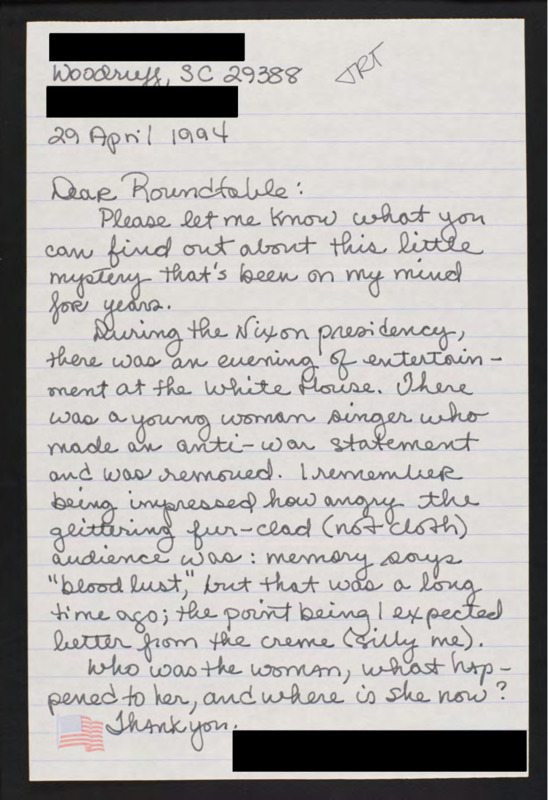 Woodruff, SC 29388
JRT
29 April 1994
Dear Roundtable:
Please let me know what you
can find out about this little
mystery that's been on my mind
for years.
During the Nixon presidency,
there was an evening of entertain-
ment at the White House. There
was a young woman singer who
made an anti-war statement
and was removed. I remember
being impressed how angry the
glittering fur-clad (not cloth)
audience was: memory says
"blood lust," but that was a long
time ago; the point being I expected
better from the creme (silly me).
Who was the woman, what hap-
pened to her, and where is she now?
Thank you.